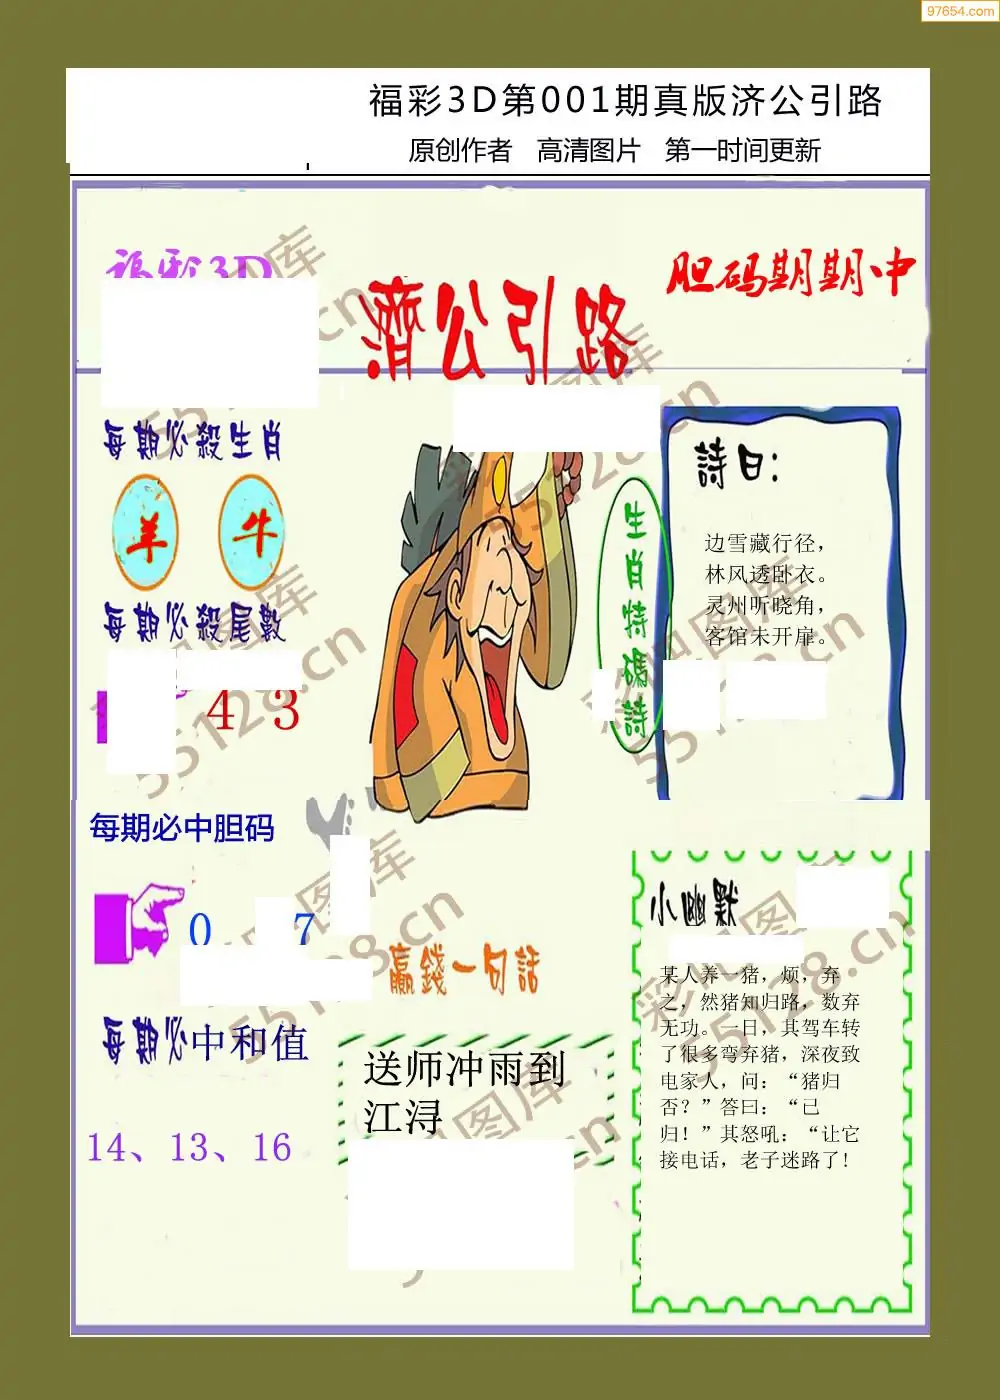 97654.com
福彩3D第001期真版济公引路
原创作者 高清图片 第一时间更新
福彩3D
濟公引路
胆码期期中
每期必殺生肖
羊 牛
每期必殺尾數
4 3
每期必中胆码
0 7
每期必中和值
14、13、16
生肖特碼詩
詩曰：
边雪藏行径，
林风透卧衣。
灵州听晓角，
客馆未开扉。
贏錢一句話
送师冲雨到
江浔
小幽默
某人养一猪，烦，弃
之，然猪知归路，数弃
无功。一日，其驾车转
了很多弯弃猪，深夜致
电家人，问：“猪归
否？”答曰：“已
归！”其怒吼：“让它
接电话，老子迷路了!
彩吧图库
55128.cn